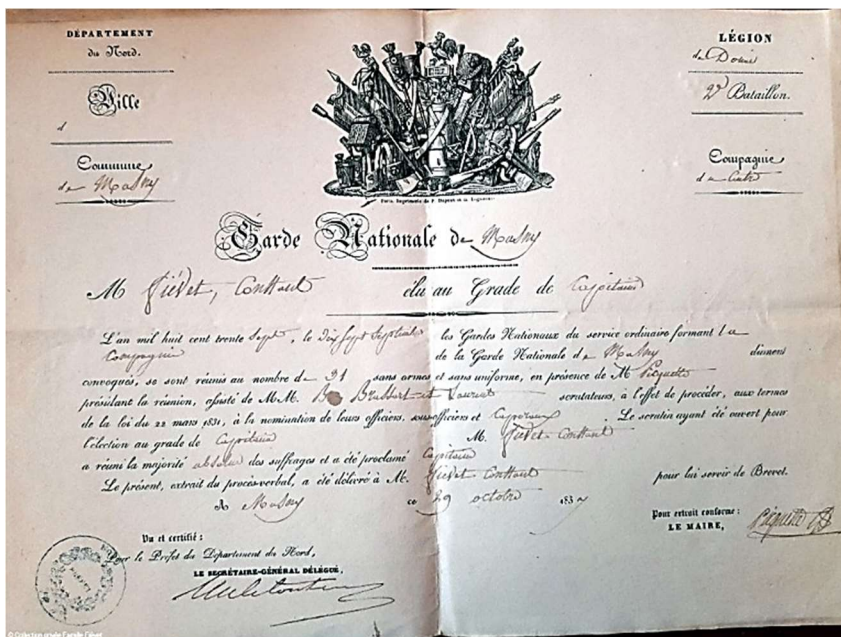 DÉPARTEMENT
du Nord.
Ville
d
Commune
de Masny
LÉGION
de Douai
2e Bataillon.
Compagnie
du Centre
Paris, Imprimerie de P. Dupont et
Garde Nationale de Masny
M Fiévet, Constant élu au Grade de Capitaine
L'an mil huit cent trente Sept, le Dix Sept Septembre les Gardes Nationaux du service ordinaire formant la
Compagnie de la Garde Nationale de Masny dûment
convoqués, se sont réunis au nombre de 31 sans armes et sans uniforme, en présence de M Piquette
présidant la réunion, assisté de MM. Brassart et Laurent scrutateurs, à l'effet de procéder, aux termes
de la loi du 22 mars 1831, à la nomination de leurs officiers, sous-officiers et Caporaux Le scrutin ayant été ouvert pour
l'élection au grade de Capitaine M. Fiévet Constant
a réuni la majorité absolue des suffrages et a été proclamé Capitaine
Le présent, extrait du procès-verbal, a été délivré à M. Fiévet Constant pour lui servir de Brevet.
A Masny ce 29 octobre 1837
Pour extrait conforme :
LE MAIRE, Piquette
Vu et certifié :
Pour le Préfet du Département du Nord,
LE SECRÉTAIRE-GÉNÉRAL DÉLÉGUÉ,
© Collection privée Famille Fiévet